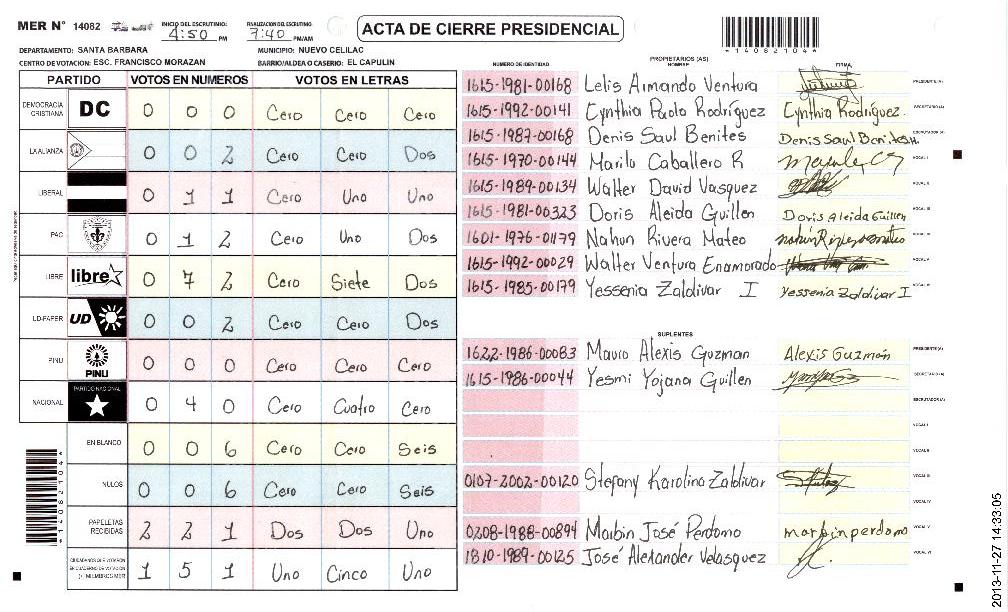 MER N° 14082 INICIO DEL ESCRUTINIO 4:50 PM FINALIZACION DEL ESCRUTINIO 7:40 PM/AM ACTA DE CIERRE PRESIDENCIAL
*14082104*
DEPARTAMENTO: SANTA BARBARA MUNICIPIO: NUEVO CELILAC
CENTRO DE VOTACION: ESC. FRANCISCO MORAZAN BARRIO/ALDEA O CASERIO: EL CAPULIN
PARTIDO VOTOS EN NUMEROS VOTOS EN LETRAS
DEMOCRACIA CRISTIANA DC 0 0 0 Cero Cero Cero
LA ALIANZA 0 0 2 Cero Cero Dos
LIBERAL 0 1 1 Cero Uno Uno
PAC 0 1 2 Cero Uno Dos
LIBRE libre 0 7 2 Cero Siete Dos
UD-FAPER UD 0 0 2 Cero Cero Dos
PINU PINU 0 0 0 Cero Cero Cero
NACIONAL PARTIDO NACIONAL 0 4 0 Cero Cuatro Cero
EN BLANCO 0 0 6 Cero Cero Seis
NULOS 0 0 6 Cero Cero Seis
PAPELETAS RECIBIDAS 2 2 1 Dos Dos Uno
CIUDADANOS QUE VOTARON EN CUADERNO DE VOTACION (+) MIEMBROS MER 1 5 1 Uno Cinco Uno
*14082104*
PROPIETARIOS (AS)
NUMERO DE IDENTIDAD NOMBRE FIRMA
1615-1981-00168 Lelis Armando Ventura PRESIDENTE(A)
1615-1992-00141 Cynthia Paola Rodríguez Cynthia Rodríguez SECRETARIO(A)
1615-1987-00168 Denis Saul Benites Denis Saul Benites H. ESCRUTADOR(A)
1615-1970-00144 Marilu Caballero R VOCAL I
1615-1989-00134 Walter David Vasquez VOCAL II
1615-1981-00323 Doris Aleida Guillen Doris Aleida Guillen VOCAL III
1601-1976-01179 Nahun Rivera Mateo VOCAL IV
1615-1992-00029 Walter Ventura Enamorado VOCAL V
1615-1985-00179 Yessenia Zaldivar I Yessenia Zaldivar I VOCAL VI
SUPLENTES
1622-1986-00083 Mauro Alexis Guzman Alexis Guzmán PRESIDENTE(A)
1615-1986-00044 Yesmi Yojana Guillen SECRETARIO(A)
ESCRUTADOR(A)
VOCAL I
VOCAL II
0107-2002-00120 Stefany Karolina Zaldivar VOCAL III
VOCAL IV
0208-1988-00894 Marbin José Perdomo marbin perdomo VOCAL V
1810-1989-00125 José Alexander Velasquez VOCAL VI
2013-11-27 14:33:05